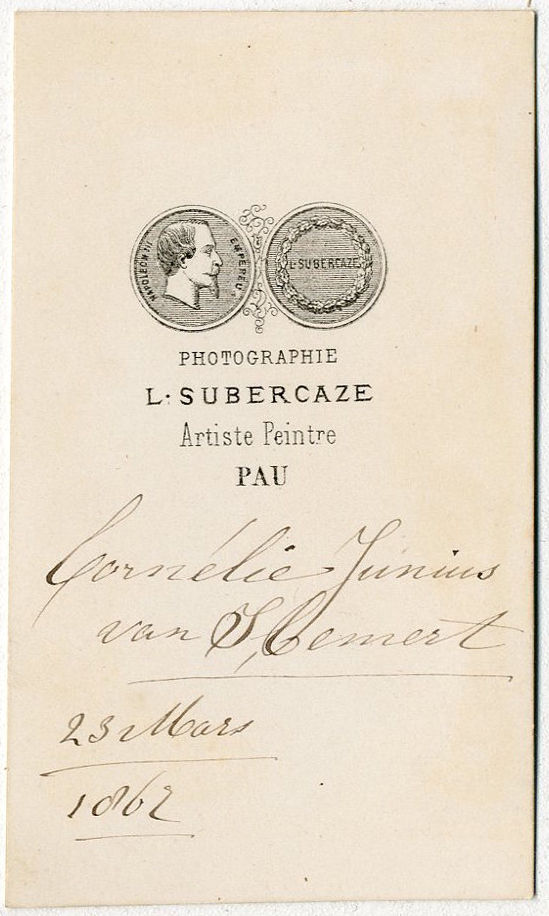 NAPOLEON III EMPEREUR
L. SUBERCAZE
PHOTOGRAPHIE
L. SUBERCAZE
Artiste Peintre
PAU
Cornélie Junius
van Hemert
23 Mars
1862